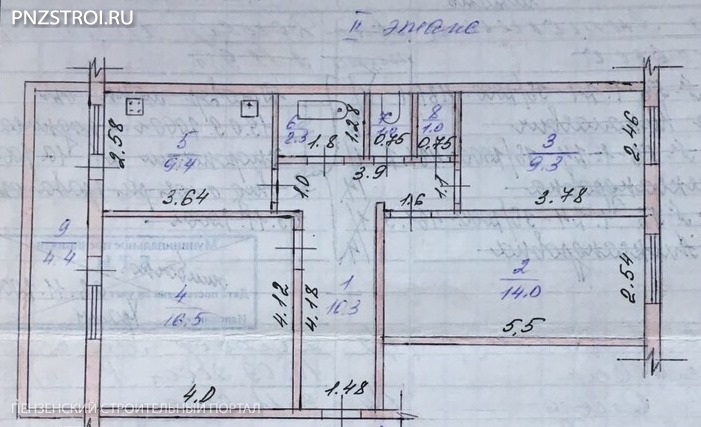 PNZSTROI.RU
II этаж
6
2.3
1.8
1.28
7
0.75
8
1.0
0.75
2.58
5
9.4
3.64
1.0
3.9
1.6
1.1
3
9.3
3.78
2.46
9
4.4
4
16,5
4.12
4.18
1
16.3
2
14.0
2.54
5,5
4.0
1.48
ПЕНЗЕНСКИЙ СТРОИТЕЛЬНЫЙ ПОРТАЛ